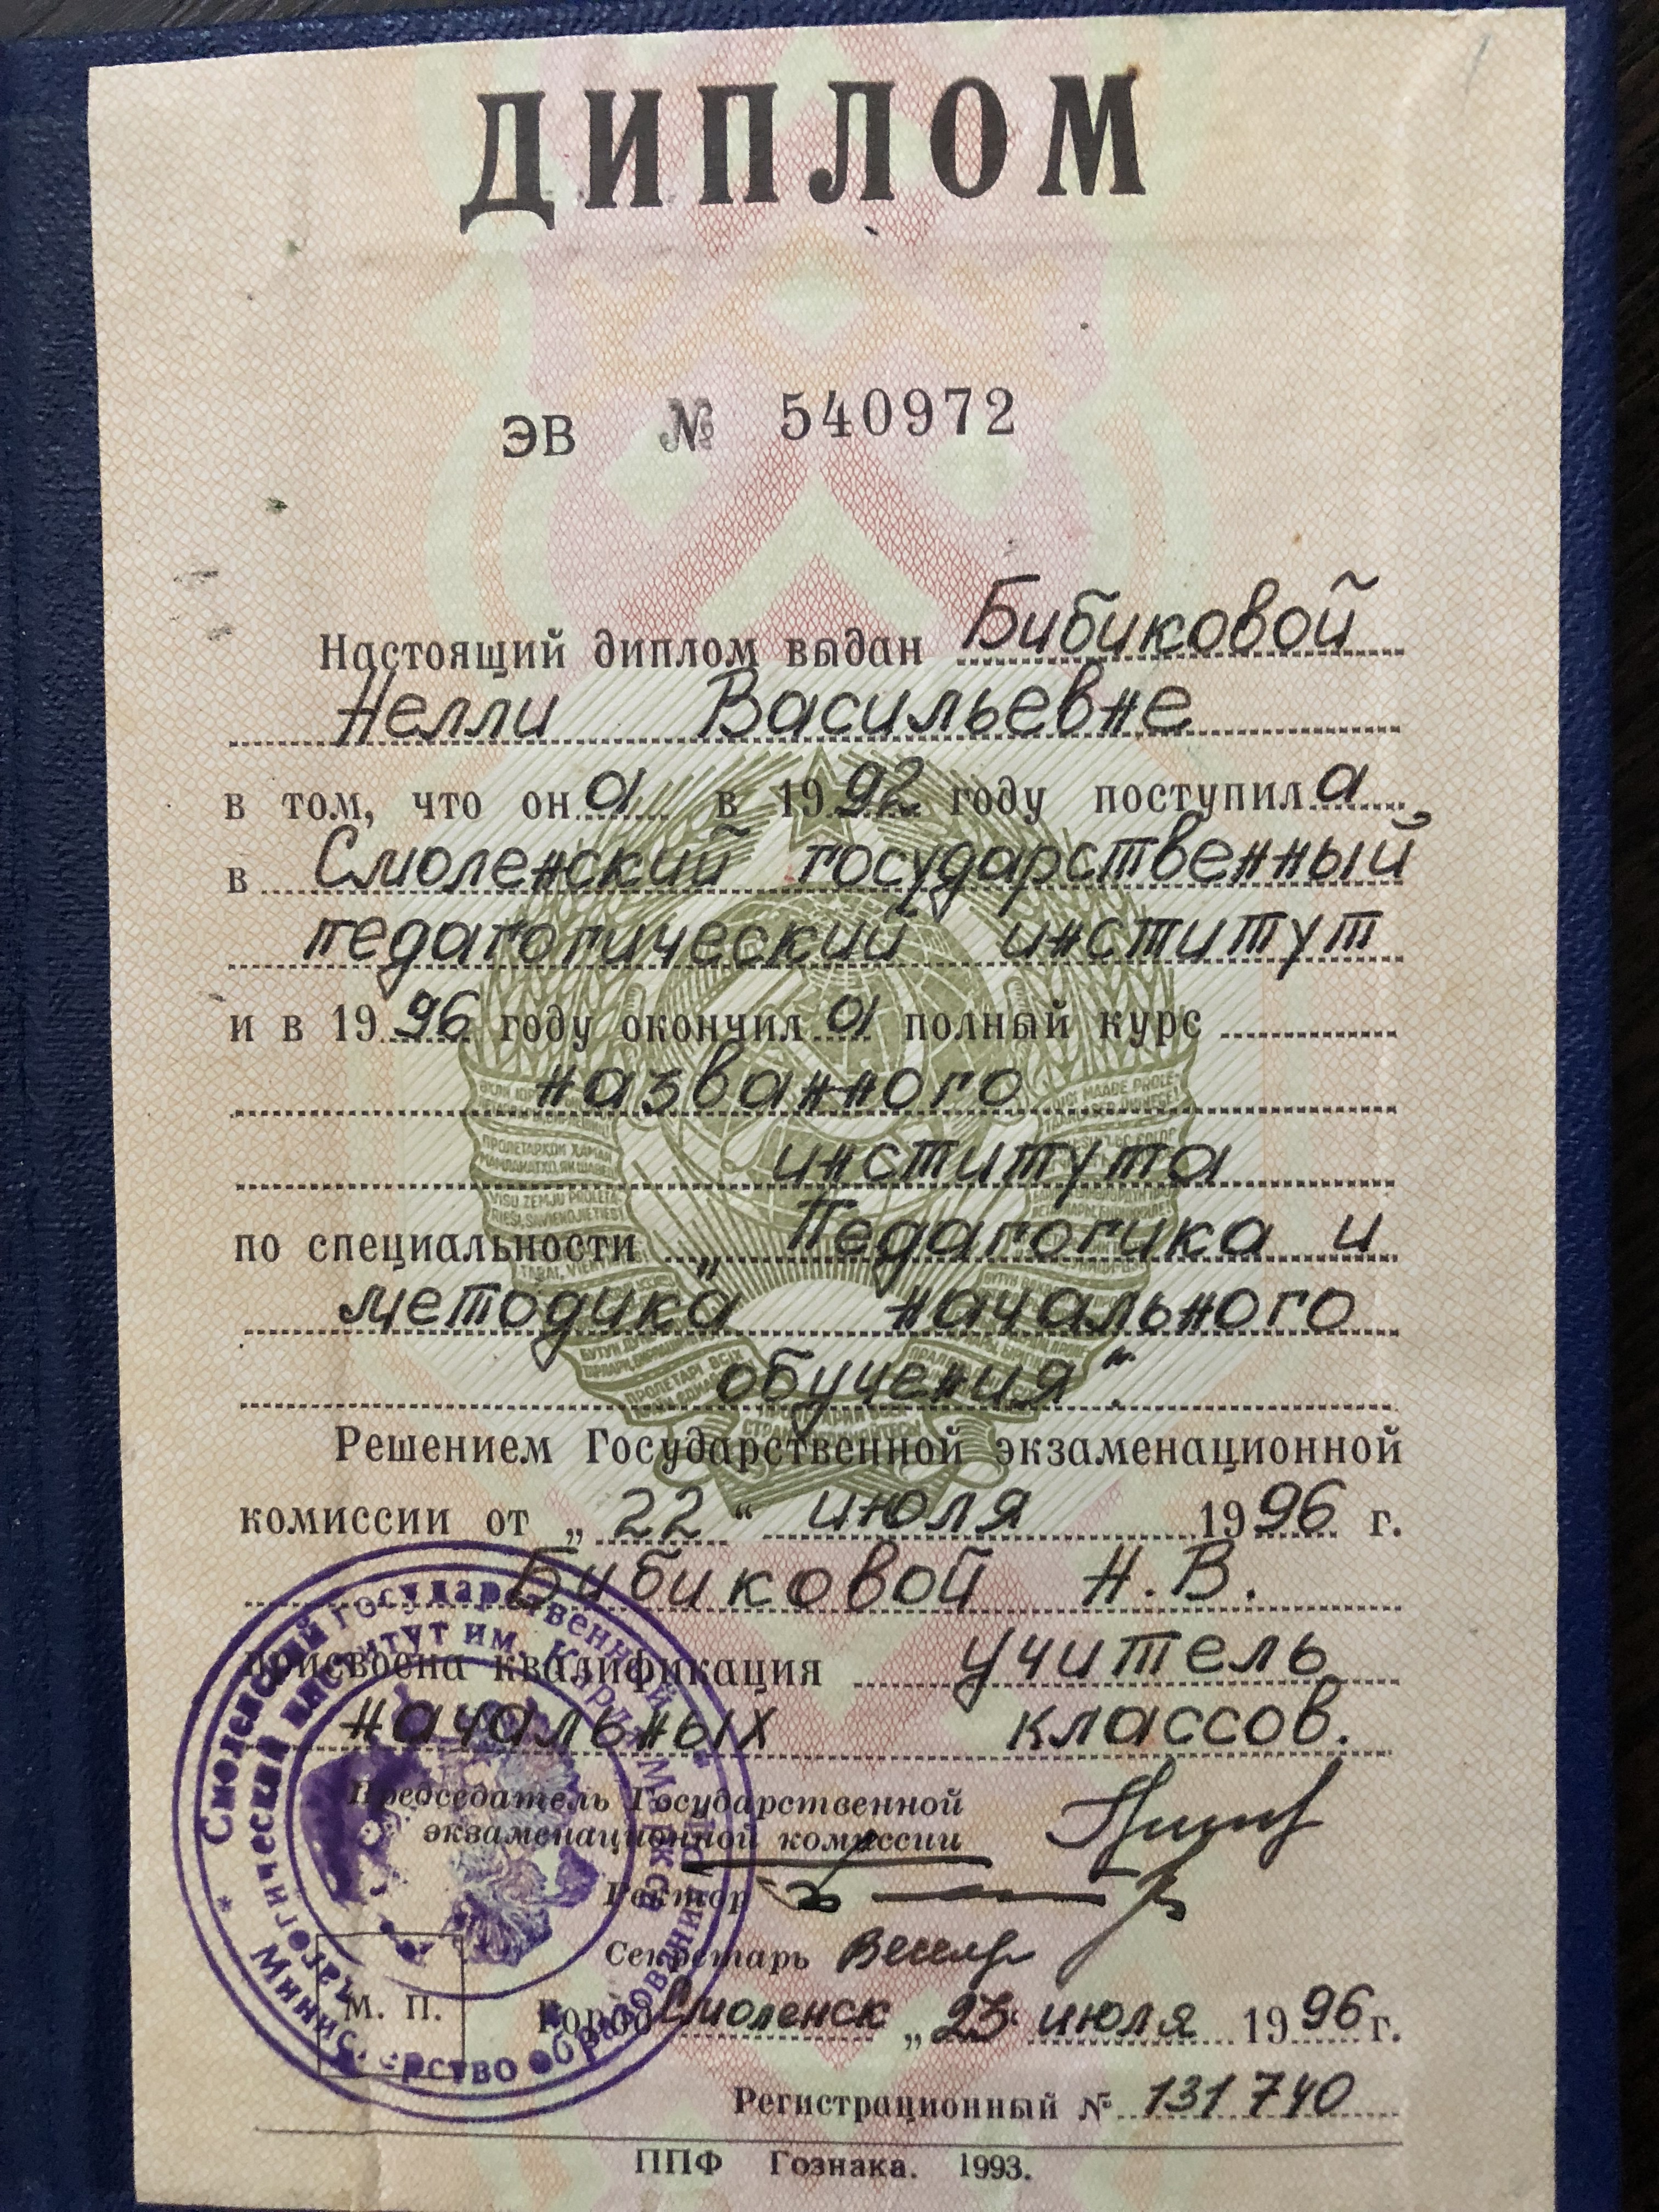 ДИПЛОМ
ЭВ № 540972
Настоящий диплом выдан Бибиковой
Нелли Васильевне
в том, что она в 1992 году поступила
в Смоленский государственный
педагогический институт
и в 1996 году окончила полный курс
названного
института
по специальности „Педагогика и
методика начального
обучения“.
Решением Государственной экзаменационной
комиссии от „22“ июля 1996 г.
Бибиковой Н.В.
присвоена квалификация учитель
начальных классов.
Председатель Государственной
экзаменационной комиссии
Ректор
Секретарь
Город Смоленск „23“ июля 1996 г.
М. П.
Регистрационный № 131740
ППФ Гознака. 1993.
Смоленский государственный
педагогический институт им. Карла Маркса
Министерство образования